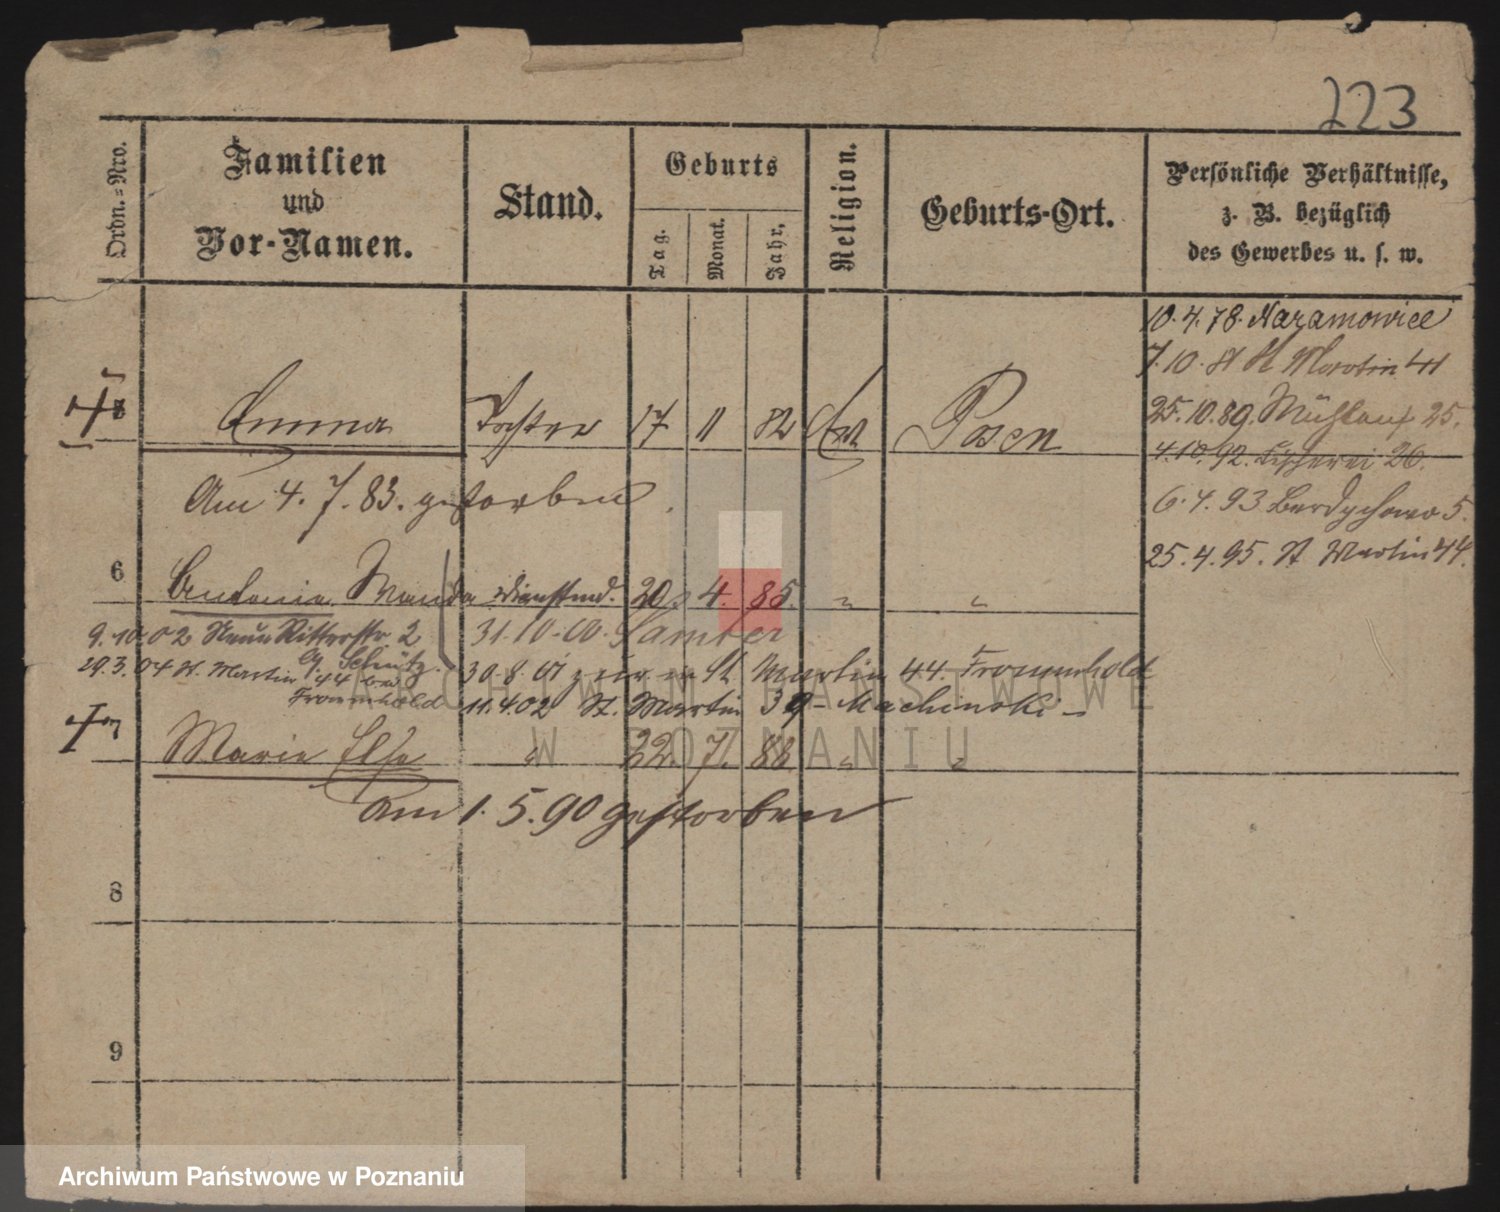 223
Ordn.-Nro.
Familien
und
Vor-Namen.
Stand.
Geburts
Tag.
Monat.
Jahr.
Religion.
Geburts-Ort.
Persönliche Verhältnisse,
z. B. bezüglich
des Gewerbes u. s. w.
10.4.78. Naramowice
7.10. St Martin 41
25.10.89. 25.
4.10.92. Fischerei 26.
6.4.93 Berdychowo 5.
25.4.95. St Martin 44.
Emma Tochter 17 11 82 Posen
Am 4.7.83. gestorben.
6 Antonie Wanda Dienstmd. 20 4. 85. " "
9.10.02 Neue Ritterstr 2
G. Schütz.
31.10.00. Samter
29.3.04 St. Martin 44 bei
Frommhold
30.8.01 zur. n St Martin 44. Frommhold
11.4.02 St. Martin 39 - Machinski -
7 Marie Else " 22. 7. 88 " "
Am 1.5.90 gestorben
8
9
ARCHIWUM PAŃSTWOWE
W POZNANIU
Archiwum Państwowe w Poznaniu